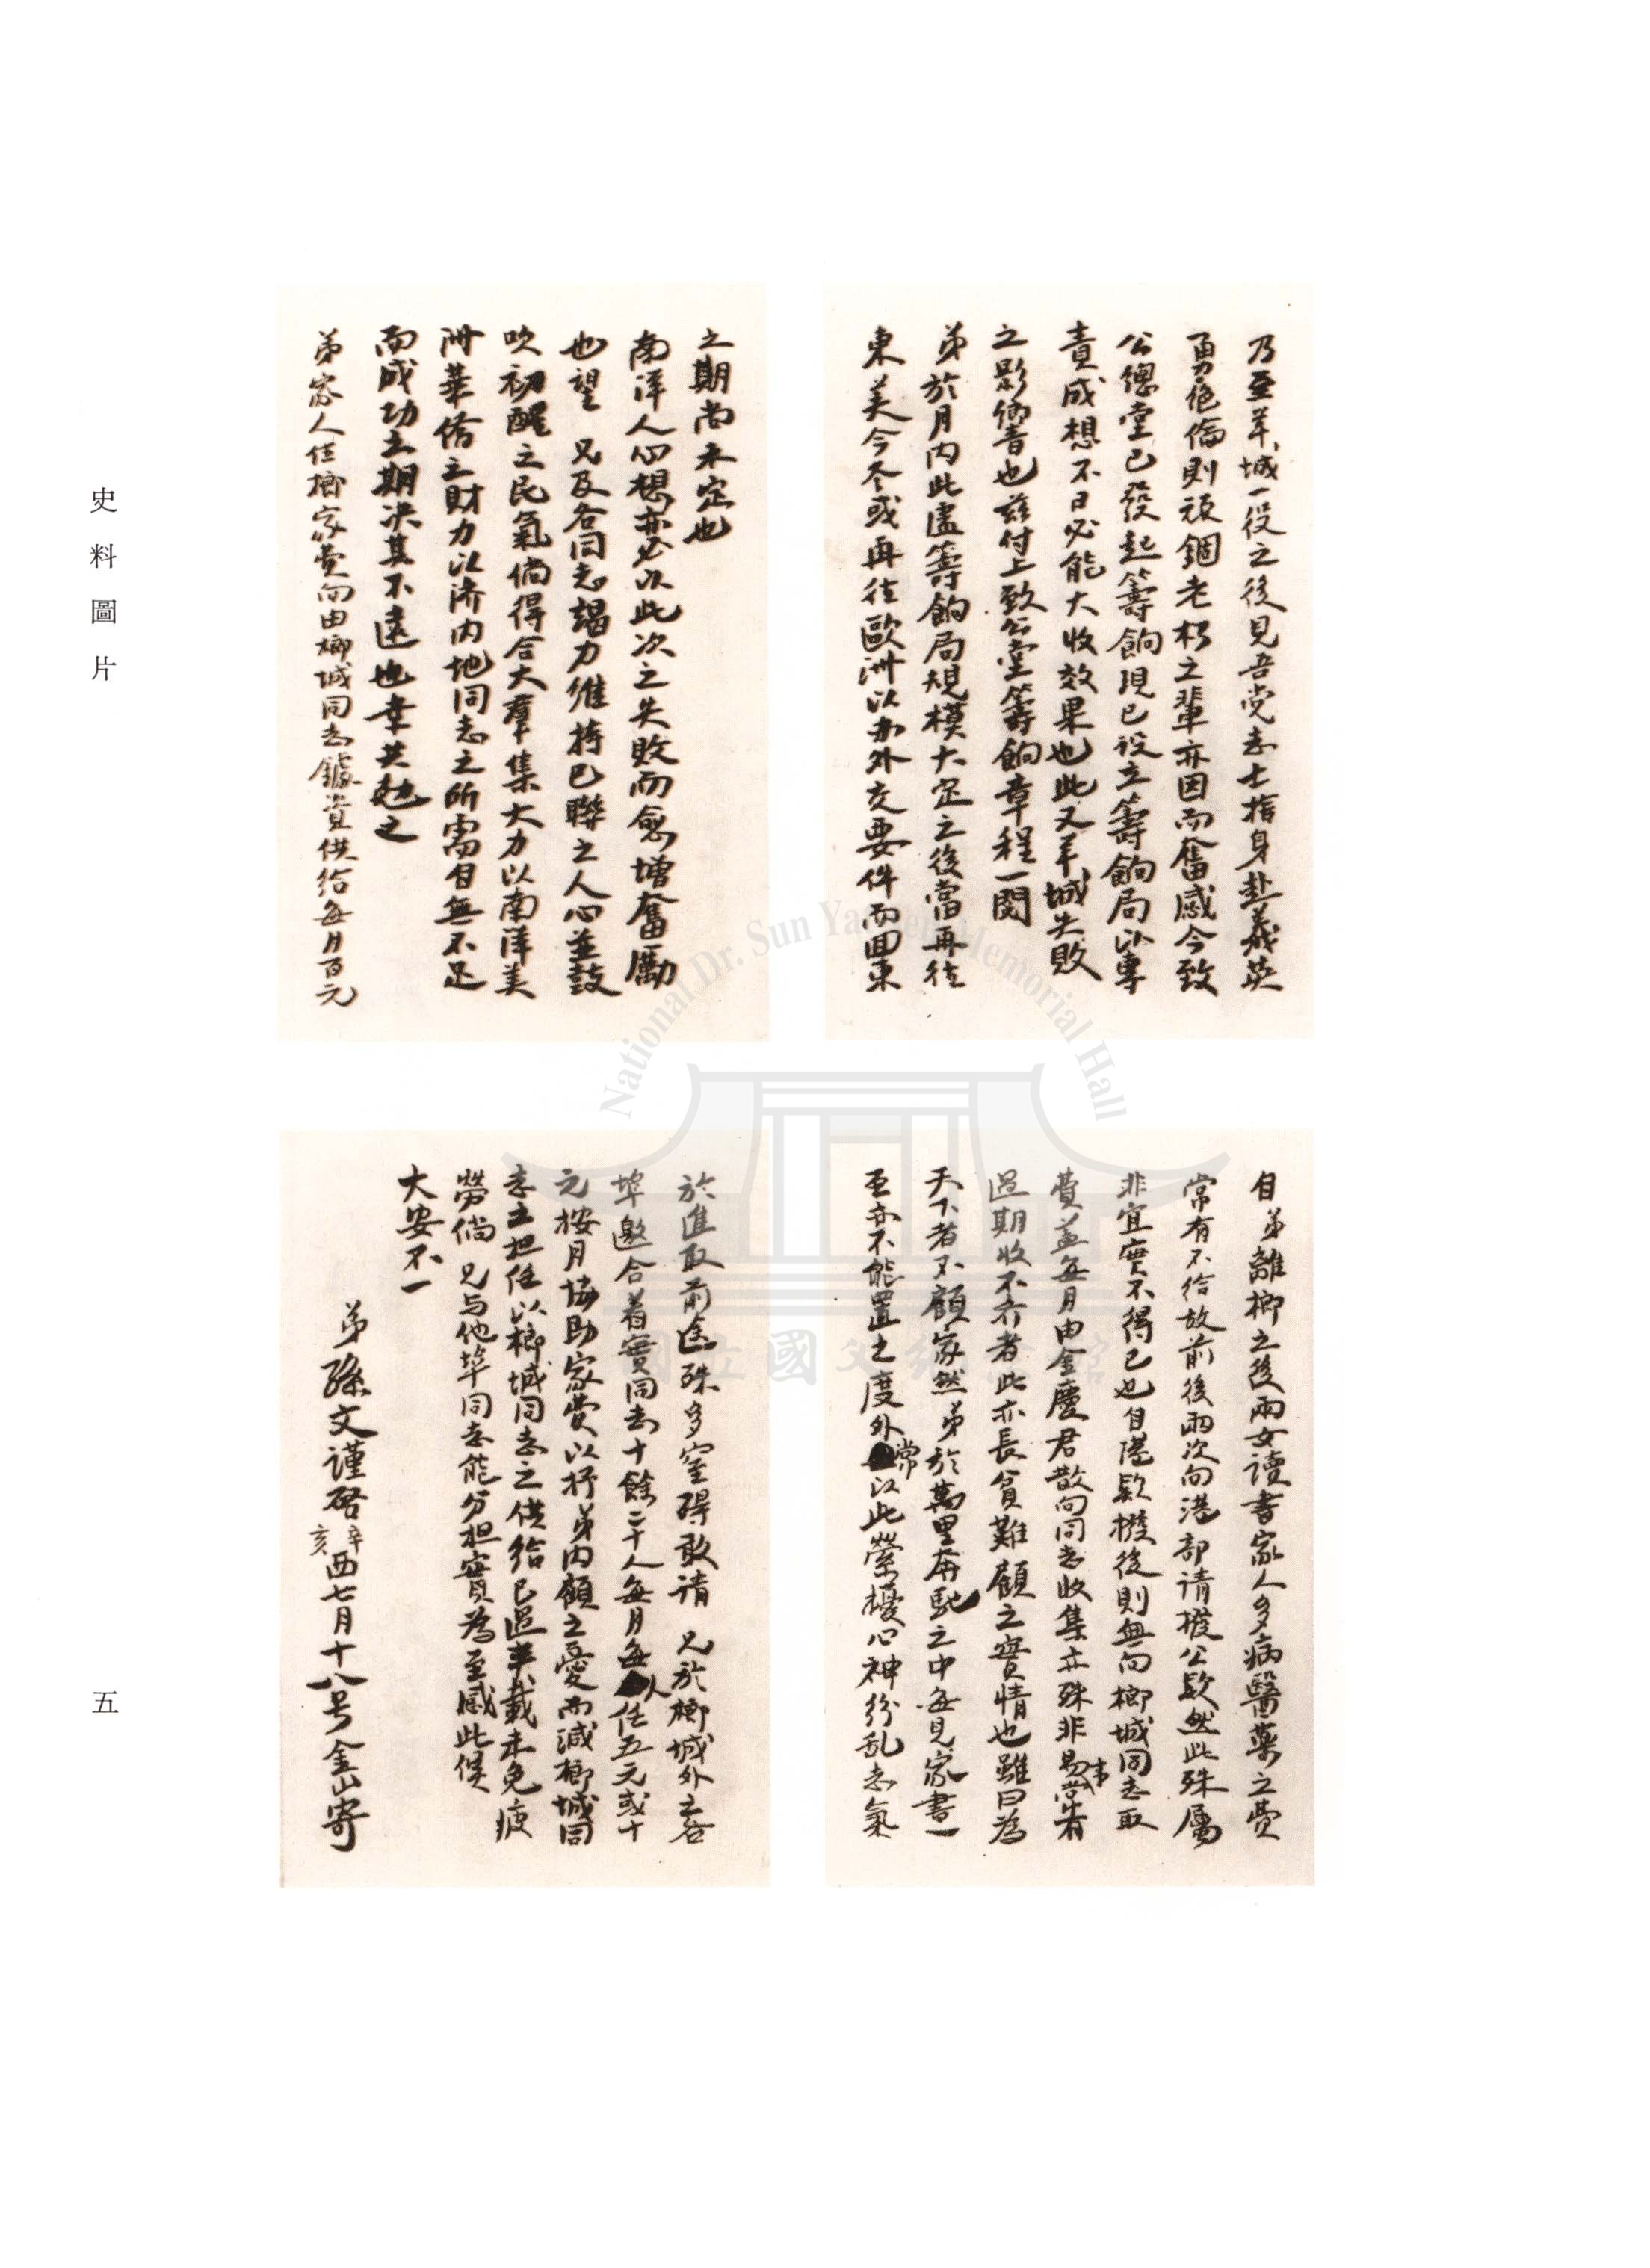 史料圖片
乃至羊城一役之後見吾党志士捨身赴義英
勇絶倫則頑錮老朽之輩亦因而奮感今致
公總堂已發起籌餉現已设立籌餉局以專
責成想不日必能大收效果也此又羊城失敗
之影響也兹付上致公堂籌餉章程一閱
弟於月内此處籌餉局規模大定之後當再往
東美今冬或再往歐洲以办外交要件而回東
之期尚未定也
南洋人心想亦必以此次之失敗而愈增奮厲
也望 兄及各同志竭力維持已聯之人心並鼓
吹初醒之民氣倘得合大羣集大力以南洋美
洲華僑之財力以济内地同志之所需自無不足
而成功之期决其不遠也幸共勉之
弟家人住檳家費向由榔城同志醵資供给每月百元
自弟離榔之後兩女讀書家人多病醫藥之費
常有不给故前後兩次向港部请撥公欵然此殊屬
非宜實不得已也自港欵撥後則無向榔城同志取
費盖每月由金慶君散向同志收集亦殊非易事常有
過期收不齐者此亦長貧難顧之實情也雖曰為
天下者不顧家然弟於萬里奔馳之中每見家書一
至亦不能置之度外常以此縈擾心神紛乱志氣
於進取前途殊多窒碍敢请 兄於榔城外之各
埠邀合着實同志十餘二十人每月每人任五元或十
元按月協助家費以抒弟内顧之憂而減榔城同
志之担任以榔城同志之供给已過半載未免疲
勞倘 兄与他埠同志能分担實為至感此候
大安不一
弟孫文謹啓 辛亥 西七月十八号金山寄
五
National Dr. Sun Yat-sen Memorial Hall
國立國父紀念館